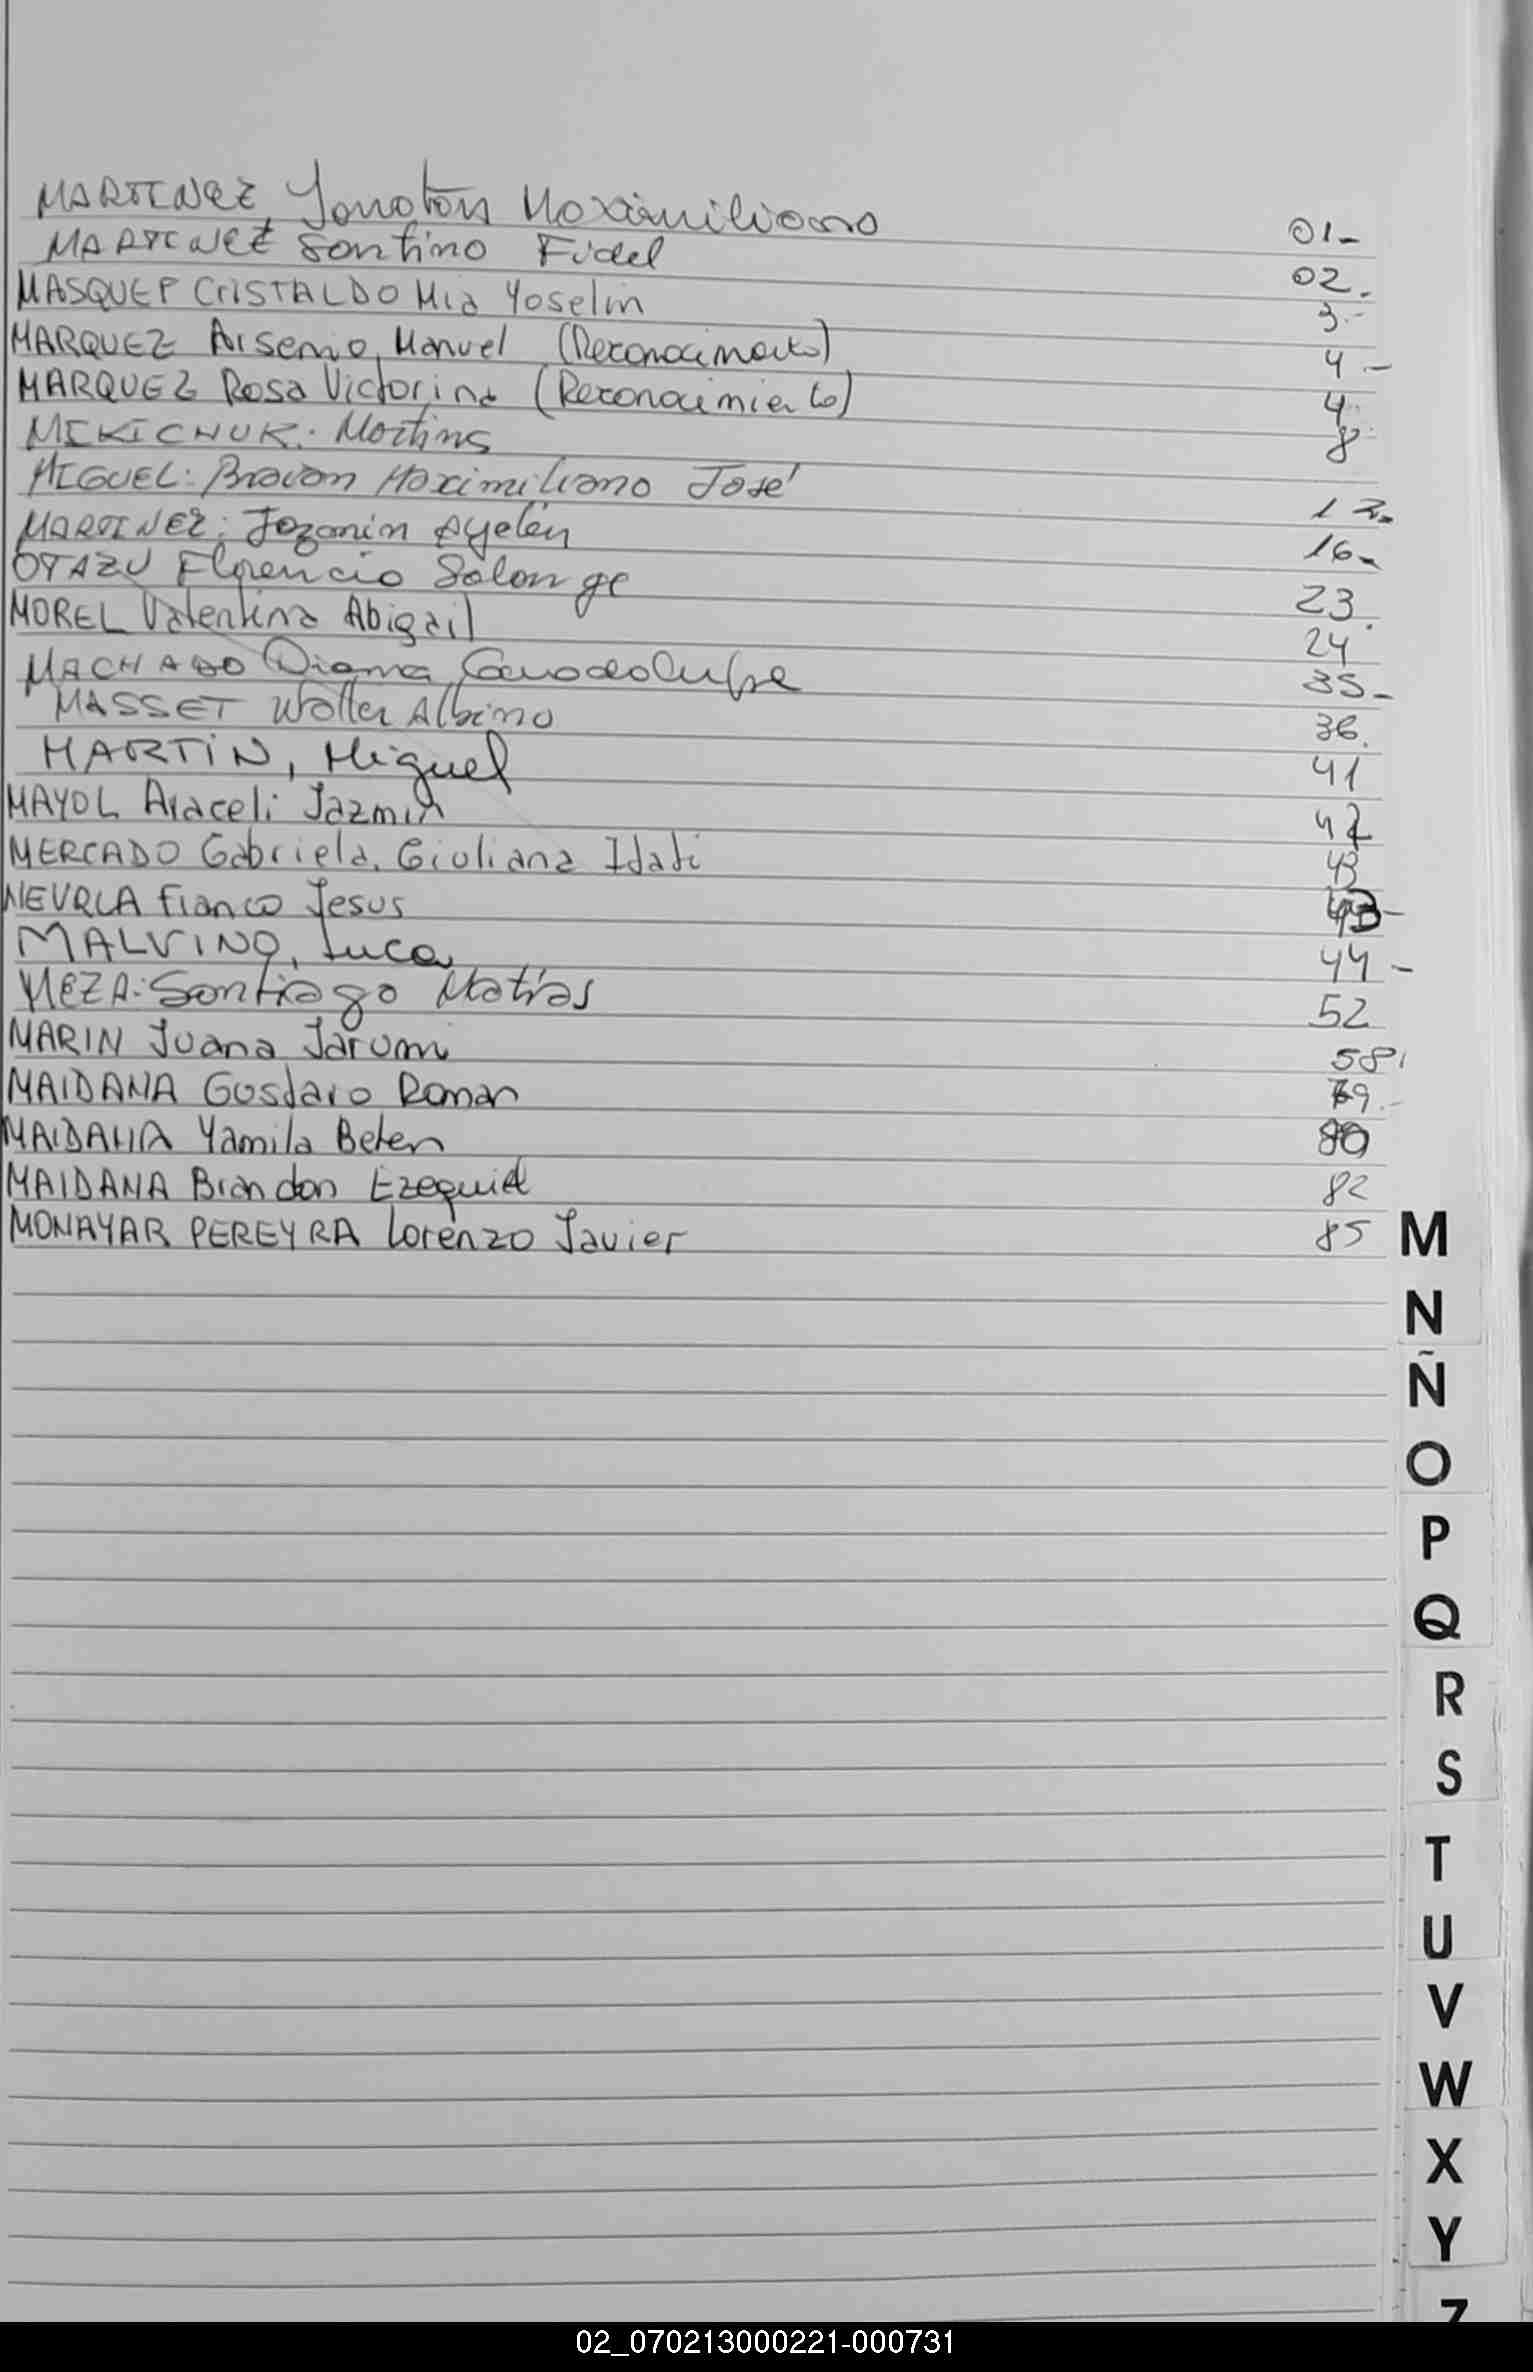 MARTINEZ, Jonatan Maximiliano 01-
MARTINEZ Santino Fidel 02.
MASQUEP CRISTALDO Mia Yoselin 3.-
MARQUEZ Arsenio, Manuel (Reconocimiento) 4.-
MARQUEZ Rosa Victorina (Reconocimiento) 4.
MIKICHUK. Martina 8
MIGUEL: Braian Maximiliano José 12-
MARTINEZ: Jazmin Ayelén 16-
OTAZU Florencia Solange 23.
MOREL Valentina Abigail 24
MACHADO Diana Guadalupe 35-
MASSET Walter Albino 36.
MARTIN, Miguel 41
MAYOL Araceli Jazmin 42
MERCADO Gabriela. Giuliana Idati 43
NEVRLA Franco Jesus 43-
MALVINO, Luca 44-
MEZA: Santiago Matías 52
MARIN Juana Jarumi 58
MAIDANA Gustavo Roman 79.-
MAIDANA Yamila Belen 80
MAIDANA Brandon Ezequiel 82
MONAYAR PEREYRA Lorenzo Javier 85
M
N
Ñ
O
P
Q
R
S
T
U
V
W
X
Y
Z
02_070213000221-000731